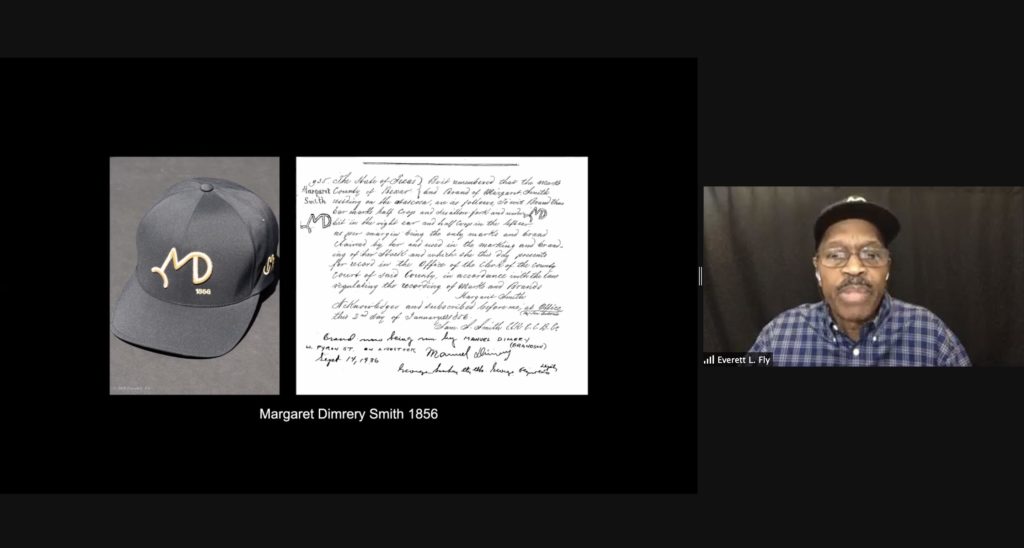 MD
1856
935
Margaret
Smith
MD
The State of Texas } Be it remembered that the Marks
County of Bexar } and Brand of Margaret Smith
residing on the are as follows, To wit Brand thus
Ear marks half Crop and Swallow fork and under MD
bit in the right ear and half Crop in the left
as per margin being the only marks and brand
claimed by her and used in the marking and brand-
ing of her Stock and which she this day presents
for record in the Office of the Clerk of the County
Court of said County, in accordance with the law
regulating the recording of Marks and Brands
Margaret Smith
Acknowledged and subscribed before me, at Office
this 2nd day of January 1856
Sam S. Smith
Brand now being run by MANUEL DIMERY
(GRANDSON)
W. PYRON ST. ON LIVESTOCK Manuel Dimery
Sept 14, 1936
Margaret Dimrery Smith 1856
Everett L. Fly